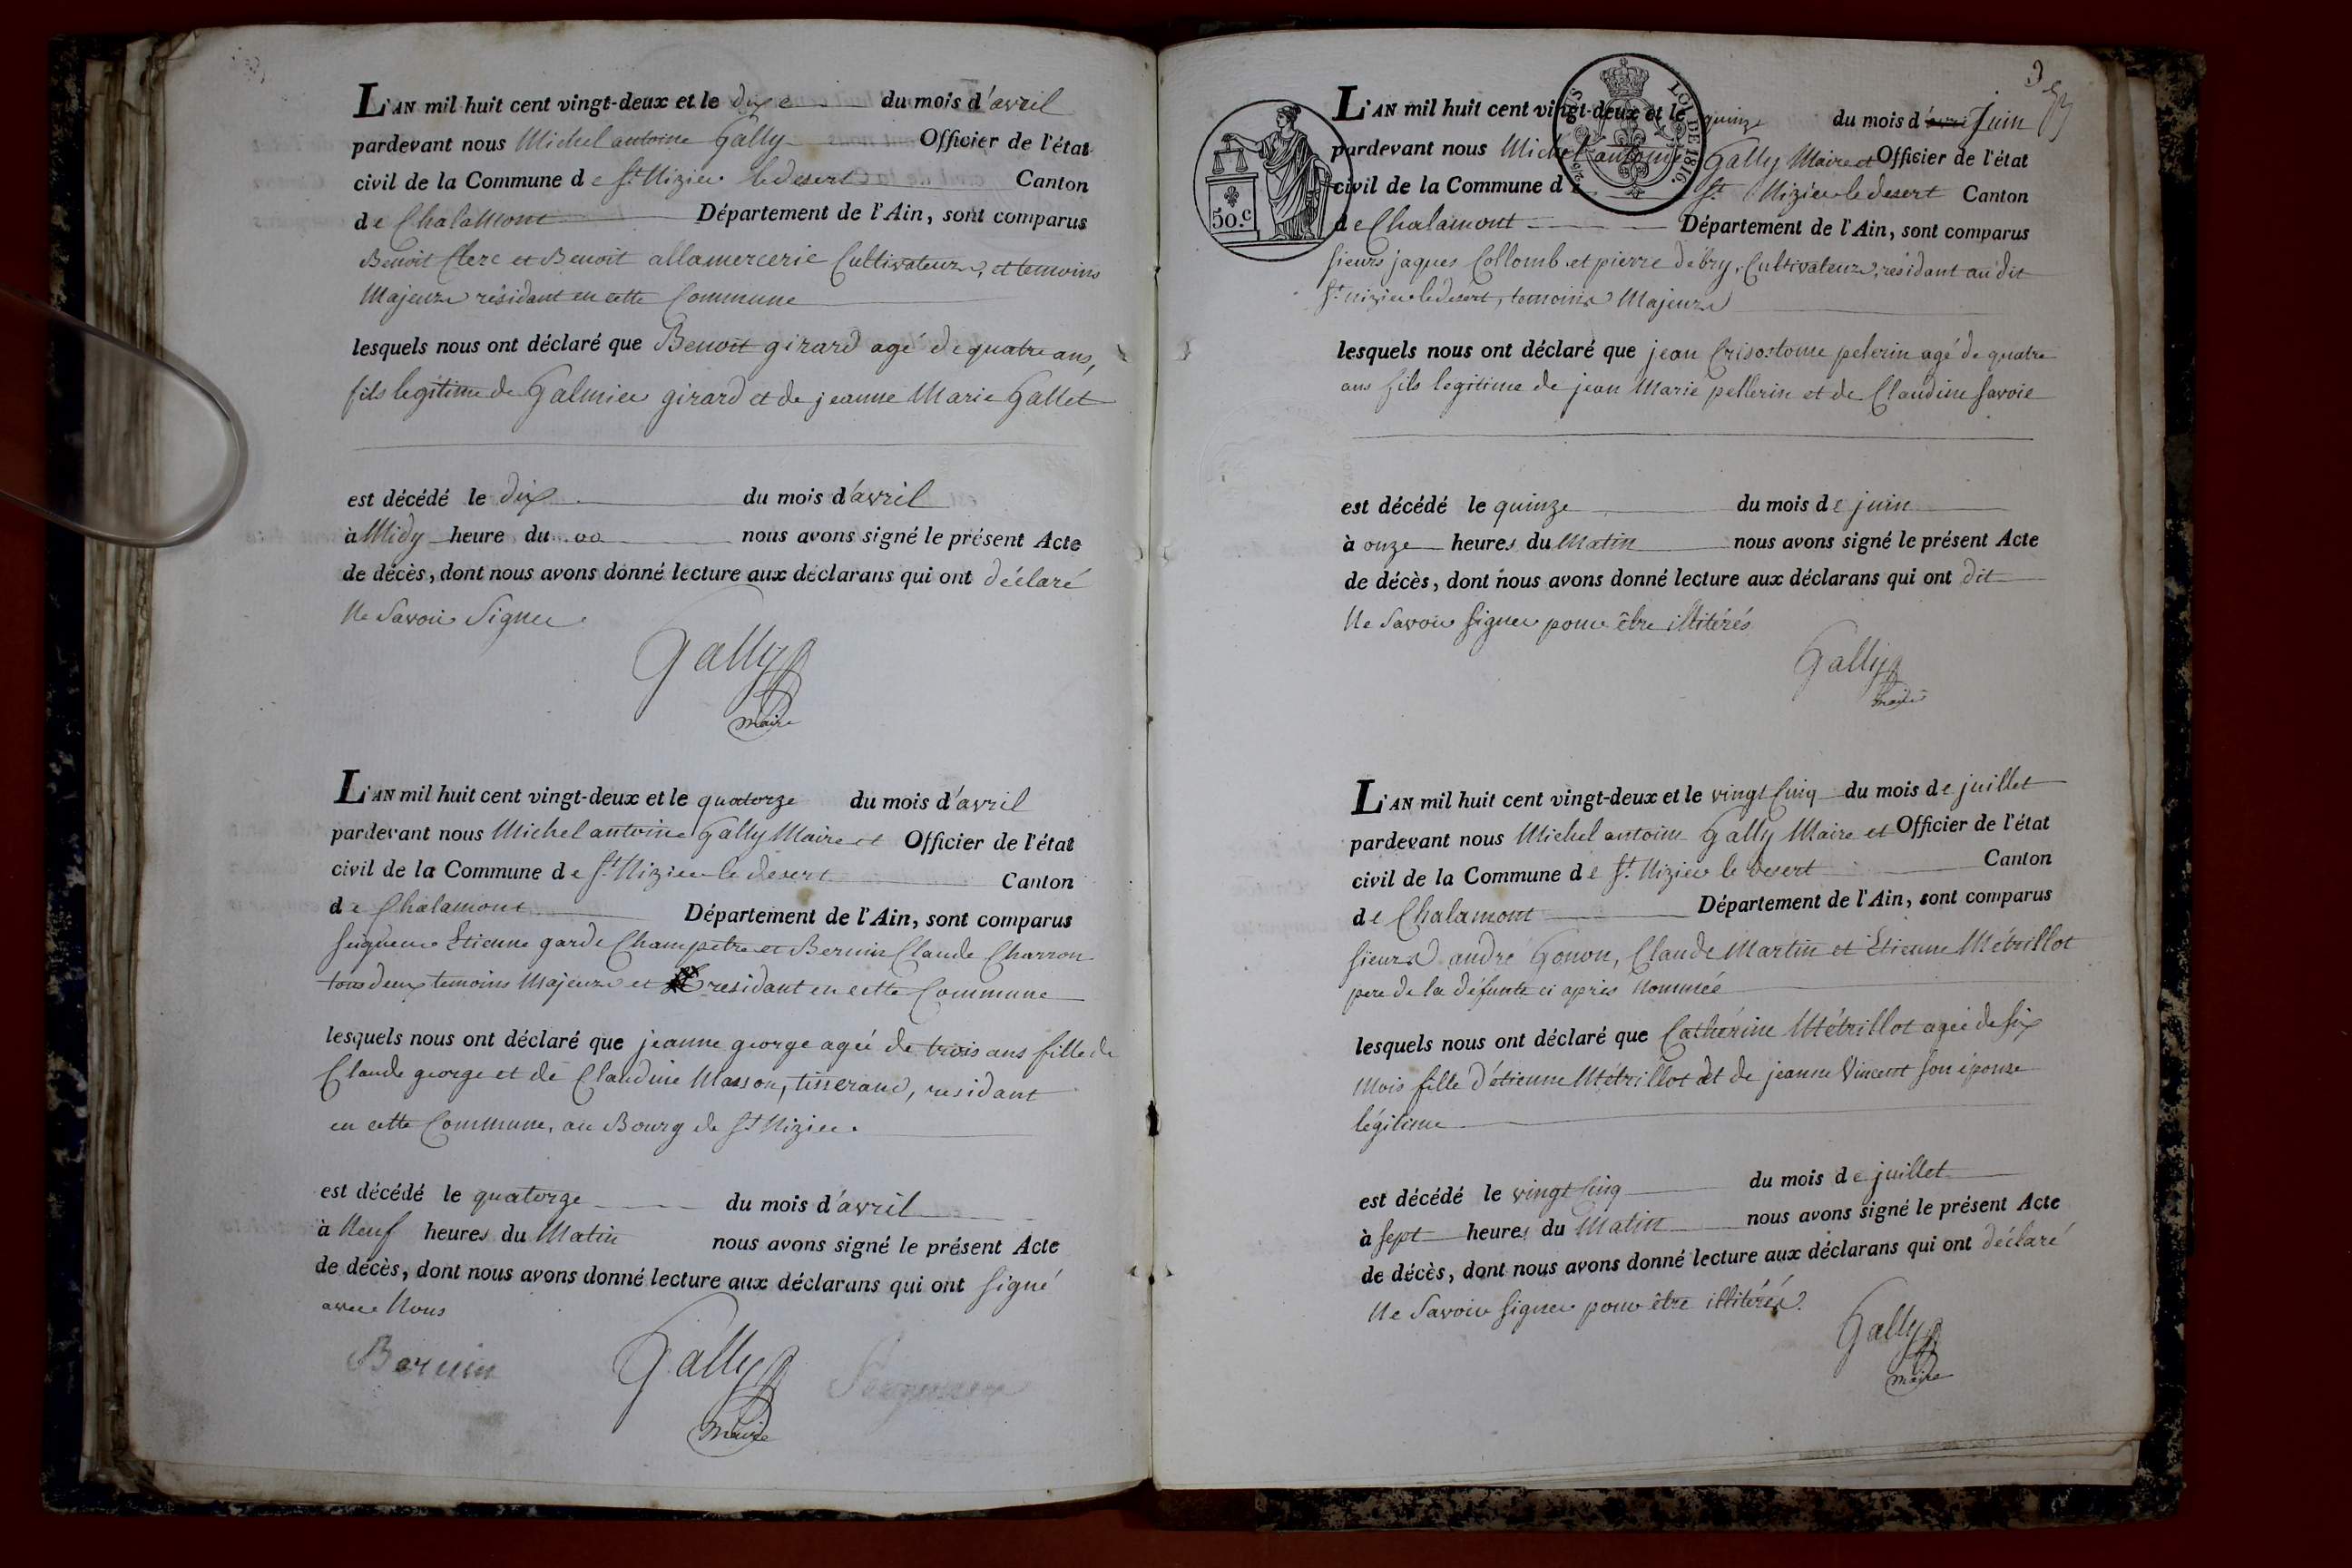 L'AN mil huit cent vingt-deux et le dix du mois d'avril
pardevant nous Michel antoine Gally Officier de l'état
civil de la Commune de St Nizier le desert Canton
de Chalamont Département de l'Ain, sont comparus
Benoit Clerc et Benoit allamercerie Cultivateurs, et temoins
Majeurs résidant en cette Commune
lesquels nous ont déclaré que Benoit girard agé de quatre ans,
fils legitime de Galmier girard et de jeanne Marie Gallet
est décédé le dix du mois d'avril
à Midy heure du nous avons signé le présent Acte
de décès, dont nous avons donné lecture aux déclarans qui ont déclaré
Ne Savoir Signer
Gally
maire
L'AN mil huit cent vingt-deux et le quatorze du mois d'avril
pardevant nous Michel antoine Gally Maire et Officier de l'état
civil de la Commune de St Nizier le desert Canton
de Chalamont Département de l'Ain, sont comparus
Etienne garde Champetre et Bernin Claude Charron
tous deux temoins Majeurs et residant en cette Commune
lesquels nous ont déclaré que jeanne george ageé de trois ans fille de
Claude george et de Claudine Masson, tisserand, residant
en cette Commune, au Bourg de St Nizier.
est décédé le quatorze du mois d'avril
à Neuf heures du Matin nous avons signé le présent Acte
de décès, dont nous avons donné lecture aux déclarans qui ont signé
avec Nous
Bernin Gally
maire
L'AN mil huit cent vingt-deux et le quinze du mois d'avri Juin
pardevant nous Michel antoine Gally Maire et Officier de l'état
civil de la Commune de St Nizier le desert Canton
de Chalamont Département de l'Ain, sont comparus
sieurs jaques Collomb et pierre débry, Cultivateurs, résidant au dit
St nizier le desert, temoins Majeurs
lesquels nous ont déclaré que jean Crisostome pelerin agé de quatre
ans fils legitime de jean Marie pellerin et de Claudine Savoie
est décédé le quinze du mois de juin
à onze heures du Matin nous avons signé le présent Acte
de décès, dont nous avons donné lecture aux déclarans qui ont dit
Ne Savoir signer pour être illitérés
Gally
maire
L'AN mil huit cent vingt-deux et le vingt Cinq du mois de juillet
pardevant nous Michel antoine Gally Maire et Officier de l'état
civil de la Commune de St Nizier le desert Canton
de Chalamont Département de l'Ain, sont comparus
sieurs andré Gonon, Claude Martin et Etienne Métrillot
pere de la défunte ci après Nommée
lesquels nous ont déclaré que Cathérine Métrillot ageé de six
Mois fille d'étienne Métrillot et de jeanne Vincent son épouse
légitime
est décédé le vingt Cinq du mois de juillet
à sept heures du Matin nous avons signé le présent Acte
de décès, dont nous avons donné lecture aux déclarans qui ont déclaré
Ne Savoir signer pour être illitérés.
Gally
maire
50.c
LOI DE 1816.